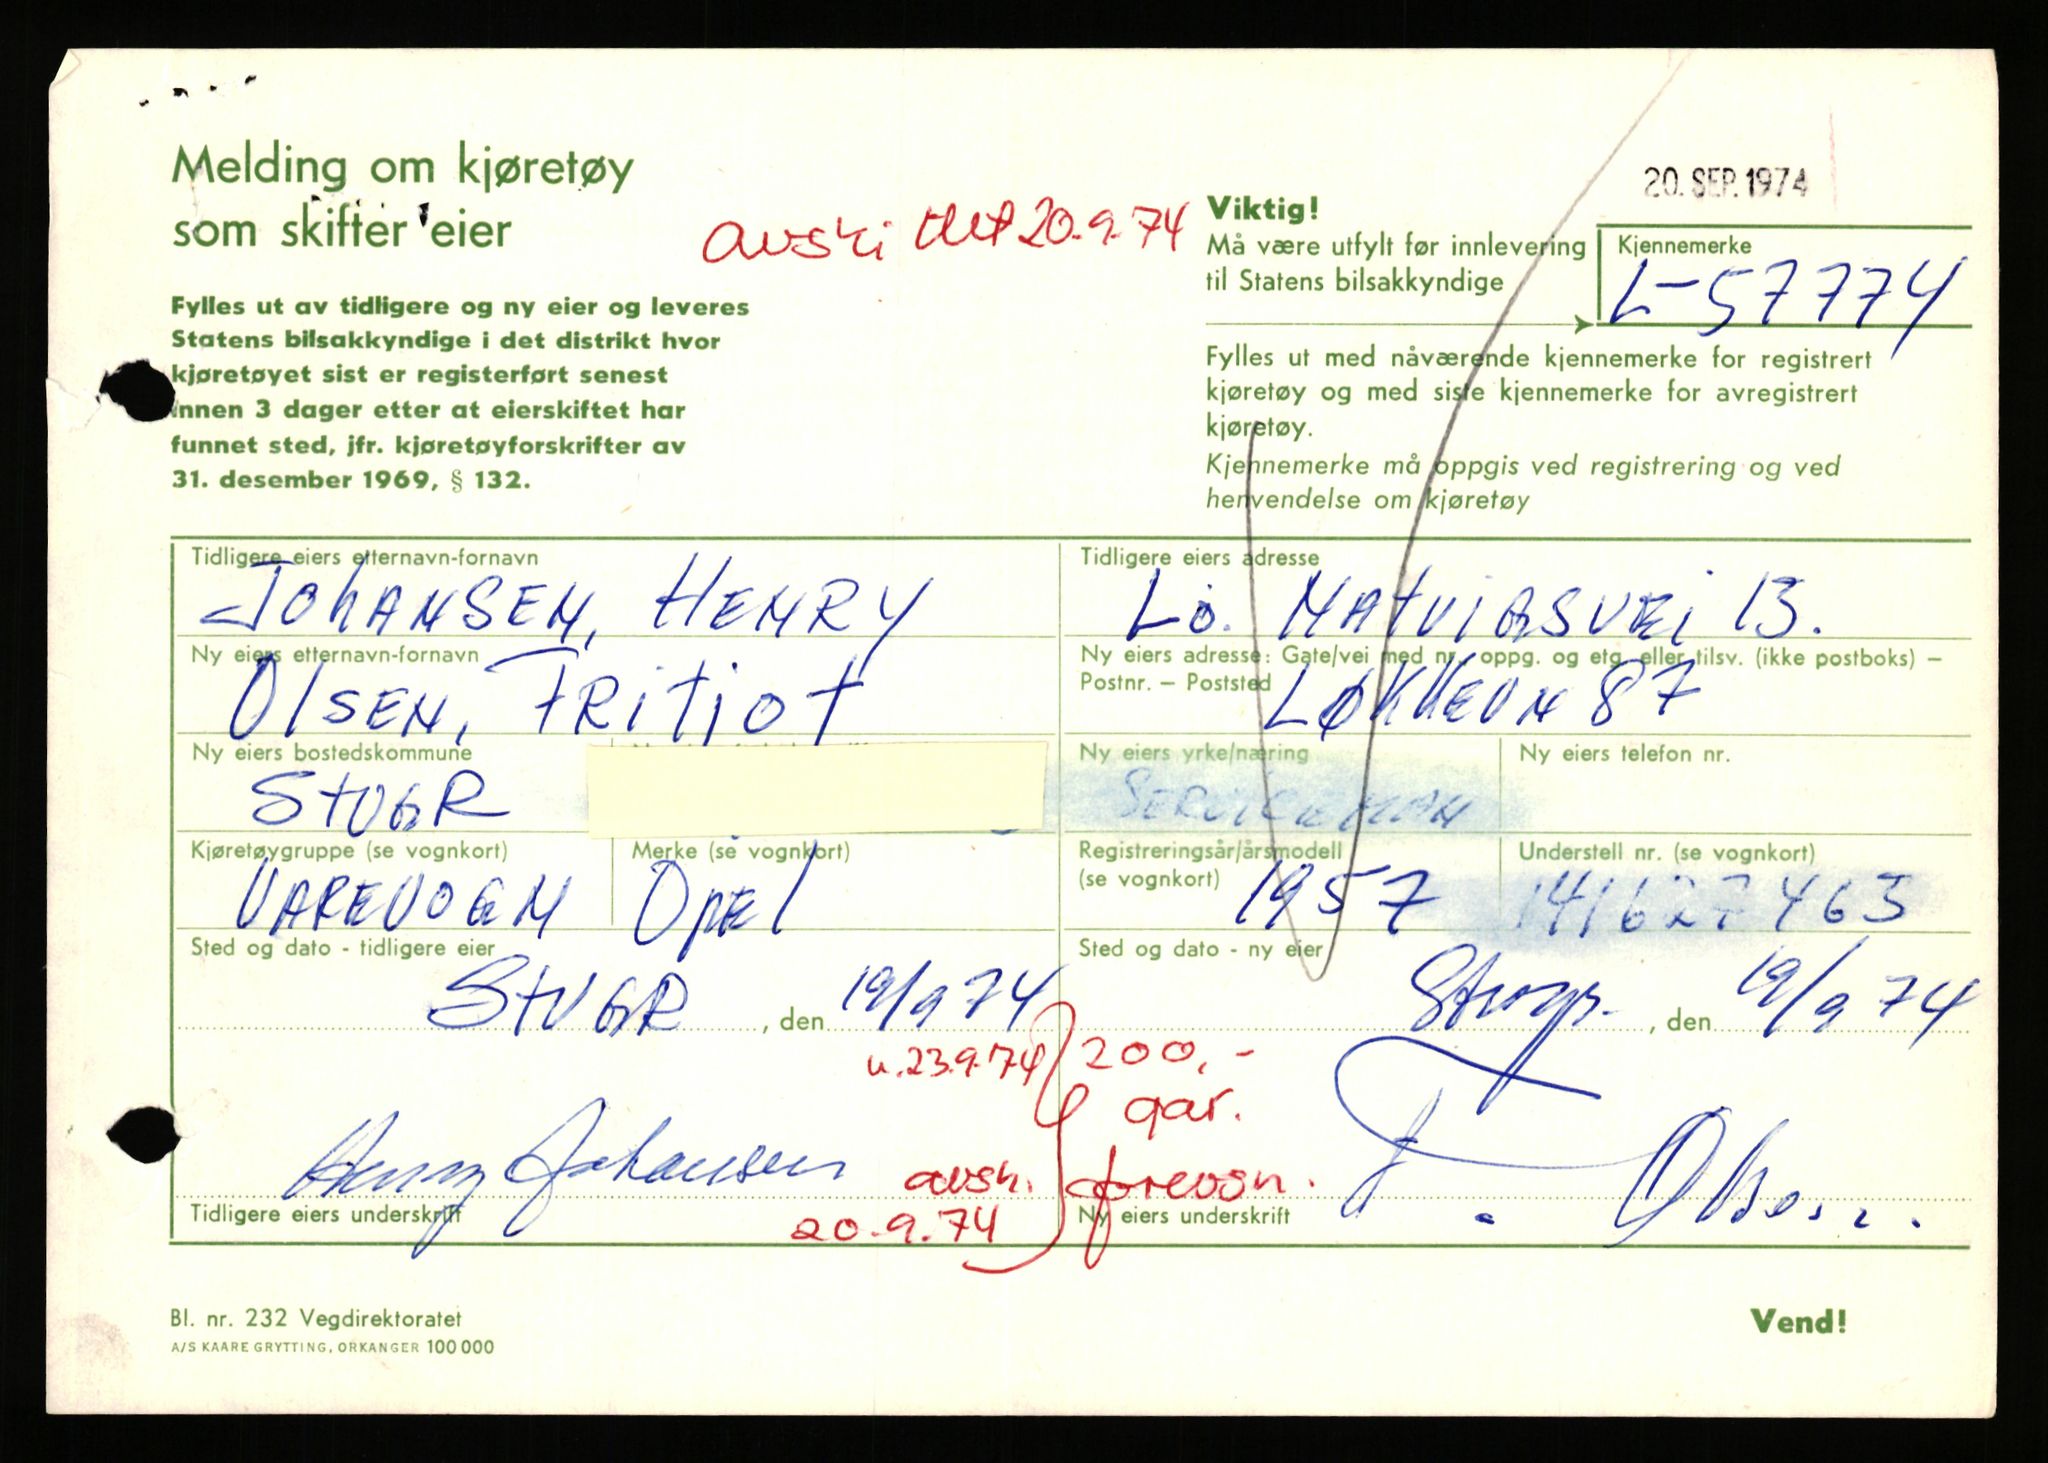 Melding om kjøretøy
som skifter eier
avskiltet 20.9.74
20. SEP. 1974
Viktig!
Må være utfylt før innlevering
til Statens bilsakkyndige
Kjennemerke
L-57774
Fylles ut av tidligere og ny eier og leveres
Statens bilsakkyndige i det distrikt hvor
kjøretøyet sist er registerført senest
innen 3 dager etter at eierskiftet har
funnet sted, jfr. kjøretøyforskrifter av
31. desember 1969, § 132.
Fylles ut med nåværende kjennemerke for registrert
kjøretøy og med siste kjennemerke for avregistrert
kjøretøy.
Kjennemerke må oppgis ved registrering og ved
henvendelse om kjøretøy
Tidligere eiers etternavn-fornavn
JOHANSEN, HENRY
Tidligere eiers adresse
13.
Ny eiers etternavn-fornavn
OLSEN, FRITJOF
Ny eiers adresse: Gate/vei med nr., oppg. og etg. eller tilsv. (ikke postboks) –
Postnr. – Poststed
LØKKEVN 87
Ny eiers bostedskommune
STVGR
Ny eiers yrke/næring
SERVICEMAN
Ny eiers telefon nr.
Kjøretøygruppe (se vognkort)
VAREVOGN
Merke (se vognkort)
OPEL
Registreringsår/årsmodell
(se vognkort)
1957
Understell nr. (se vognkort)
141627463
Sted og dato - tidligere eier
STVGR, den 19/9 74
Sted og dato - ny eier
Stvgr., den 19/9 74
u. 23.9.74
200,-
gar.
Henry Johansen
avsk.
20.9.74
frevogn.
F. Olsen
Tidligere eiers underskrift
Ny eiers underskrift
Bl. nr. 232 Vegdirektoratet
A/S KAARE GRYTTING, ORKANGER 100 000
Vend!